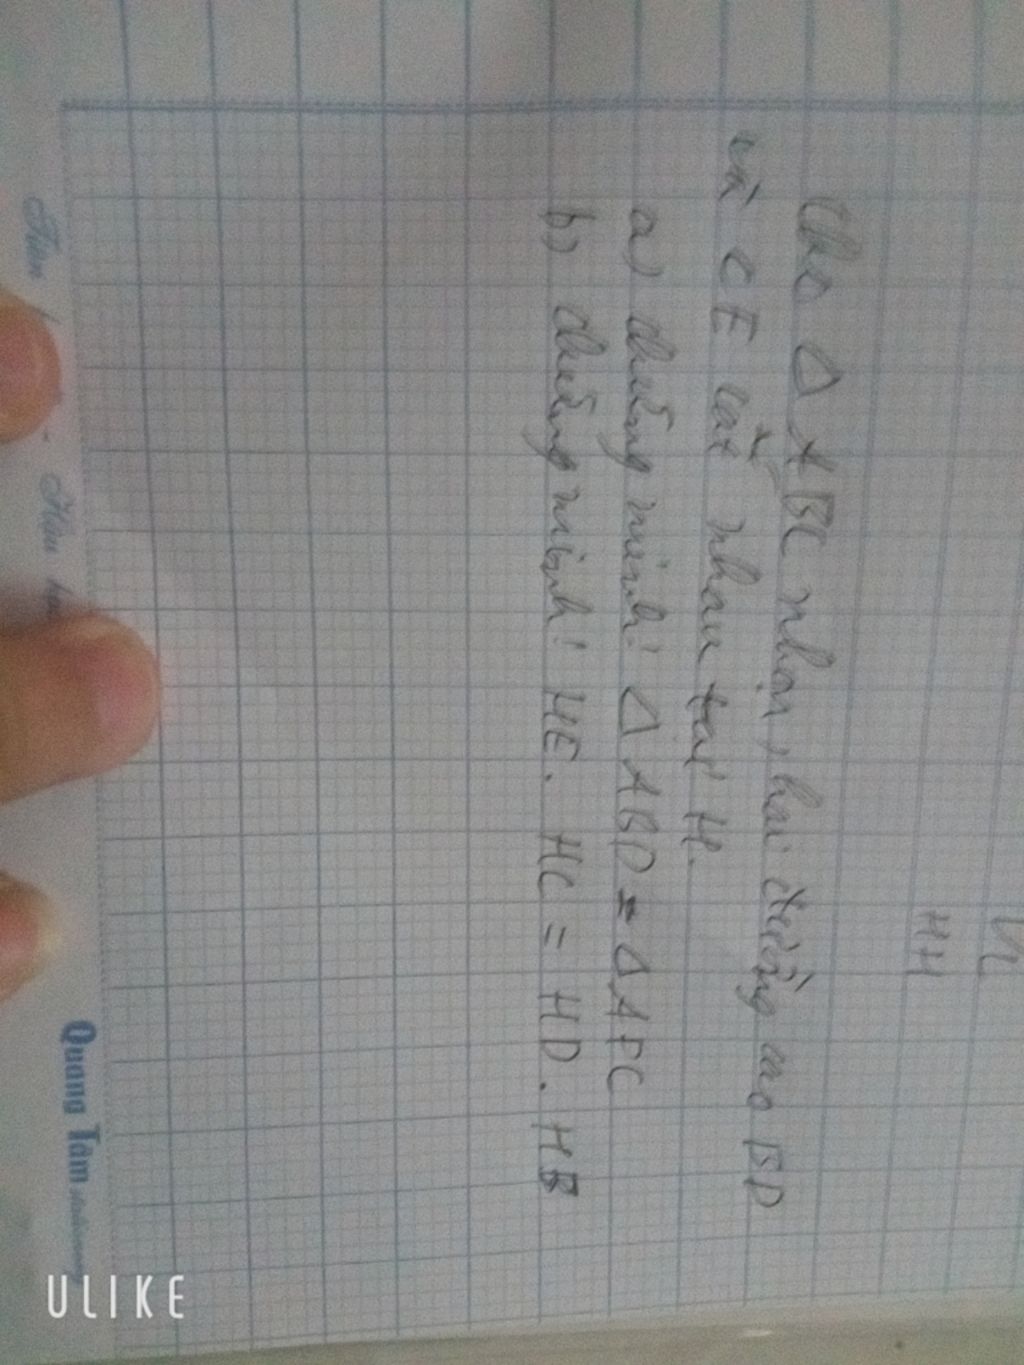 Cho Δ ABC nhọn, hai đường cao BD
và CE cắt nhau tại H.
a) chứng minh: Δ ABD = Δ AEC
b) chứng minh: HE. HC = HD. HB
HH
Quang Tâm
ULIKE